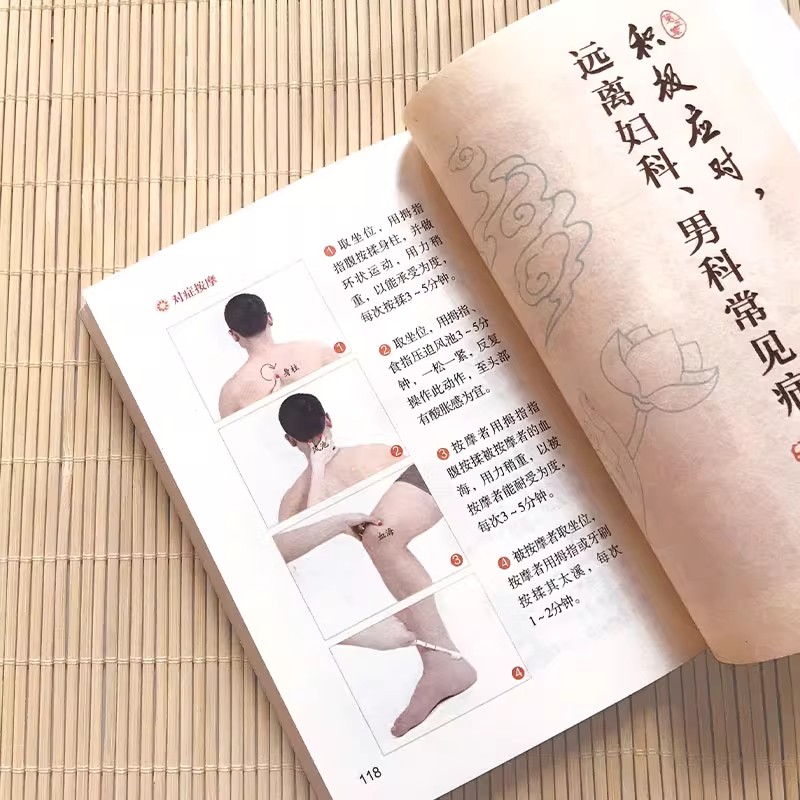 对症按摩
❶取坐位，用拇指
指腹按揉身柱，并做
环状运动，用力稍
重，以能承受为度，
每次按揉3～5分钟。
❷取坐位，用拇指、
食指压迫风池3～5分
钟，一松一紧，反复
操作此动作，至头部
有酸胀感为宜。
❸按摩者用拇指指
腹按揉被按摩者的血
海，用力稍重，以被
按摩者能耐受为度，
每次3～5分钟。
❹被按摩者取坐位，
按摩者用拇指或牙刷
按揉其太溪，每次
1～2分钟。
身柱
❶
❷
血海
❸
❹
118
积极应对，
远离妇科、男科常见病